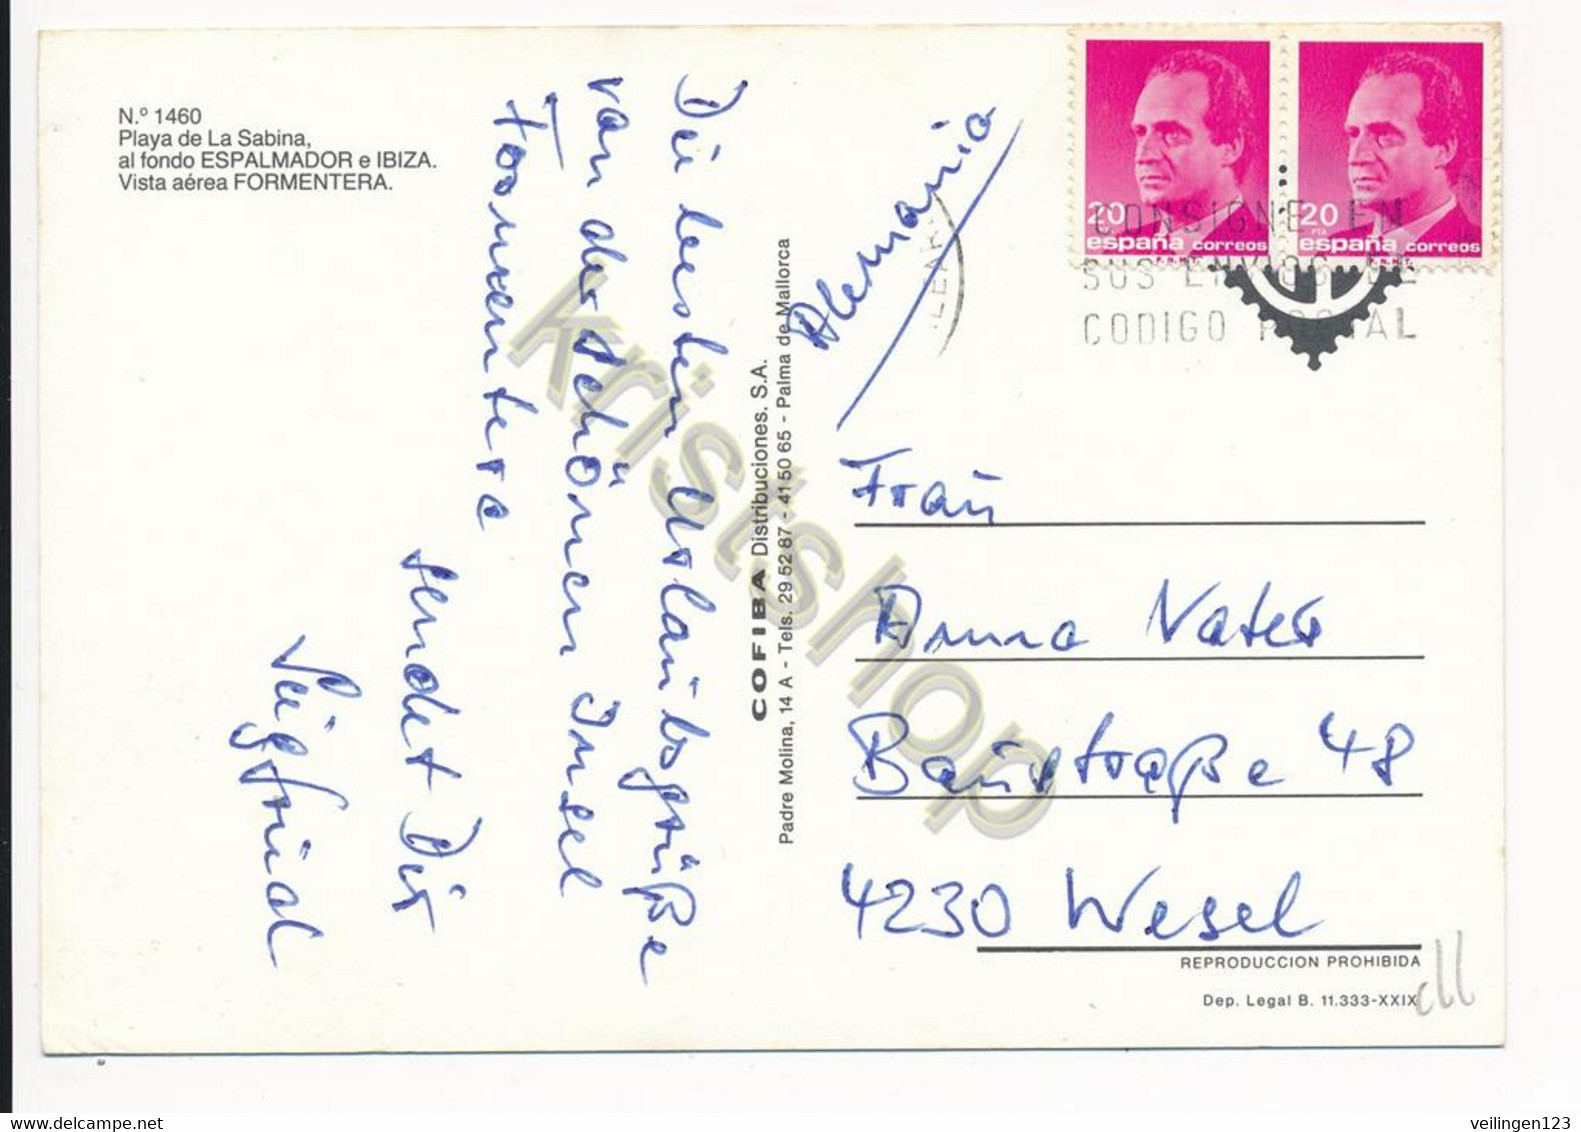 N.º 1460
Playa de La Sabina,
al fondo ESPALMADOR e IBIZA.
Vista aérea FORMENTERA.
Die besten Urlaubsgrüße
von der schönen Insel
Formentera
sendet Dir
Siegfried
COFIBA Distribuciones. S.A.
Padre Molina, 14 A - Tels. 29 52 87 - 41 50 65 - Palma de Mallorca
Alemania
20
españa correos
F.N.M.T.
20 PTA
españa correos
F.N.M.T.
CONSIGNE EN
SUS ENVIOS EL
CODIGO POSTAL
Frau
Anna Nater
Baustraße 48
4230 Wesel
REPRODUCCION PROHIBIDA
Dep. Legal B. 11.333-XXIX
kristshop
delcampe.net
veilingen123